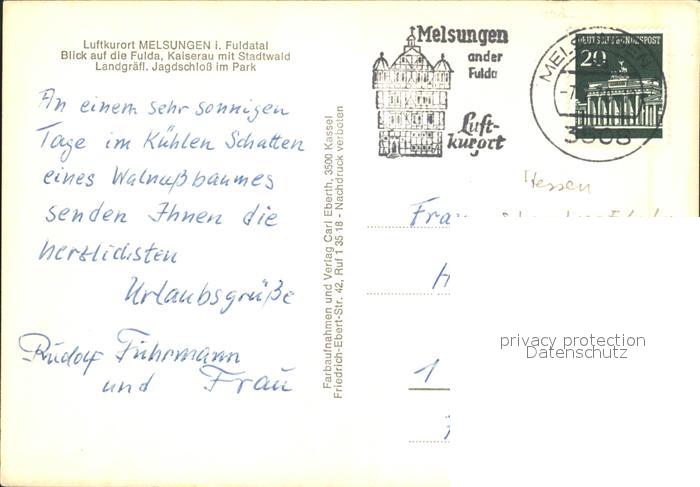 Luftkurort MELSUNGEN i. Fuldatal
Blick auf die Fulda, Kaiserau mit Stadtwald
Landgräfl. Jagdschloß im Park
An einem sehr sonnigen
Tage im Kühlen Schatten
eines Walnußbaumes
senden Ihnen die
herzlichsten
Urlaubsgrüße
Rudolf Fuhrmann
und Frau
Farbaufnahmen und Verlag Carl Eberth, 3500 Kassel
Friedrich-Ebert-Str. 42, Ruf 1 35 18 - Nachdruck verboten
Melsungen
an der
Fulda
Luft-
kurort
DEUTSCHE BUNDESPOST
20
3508
Hessen
Frau
1
privacy protection
Datenschutz